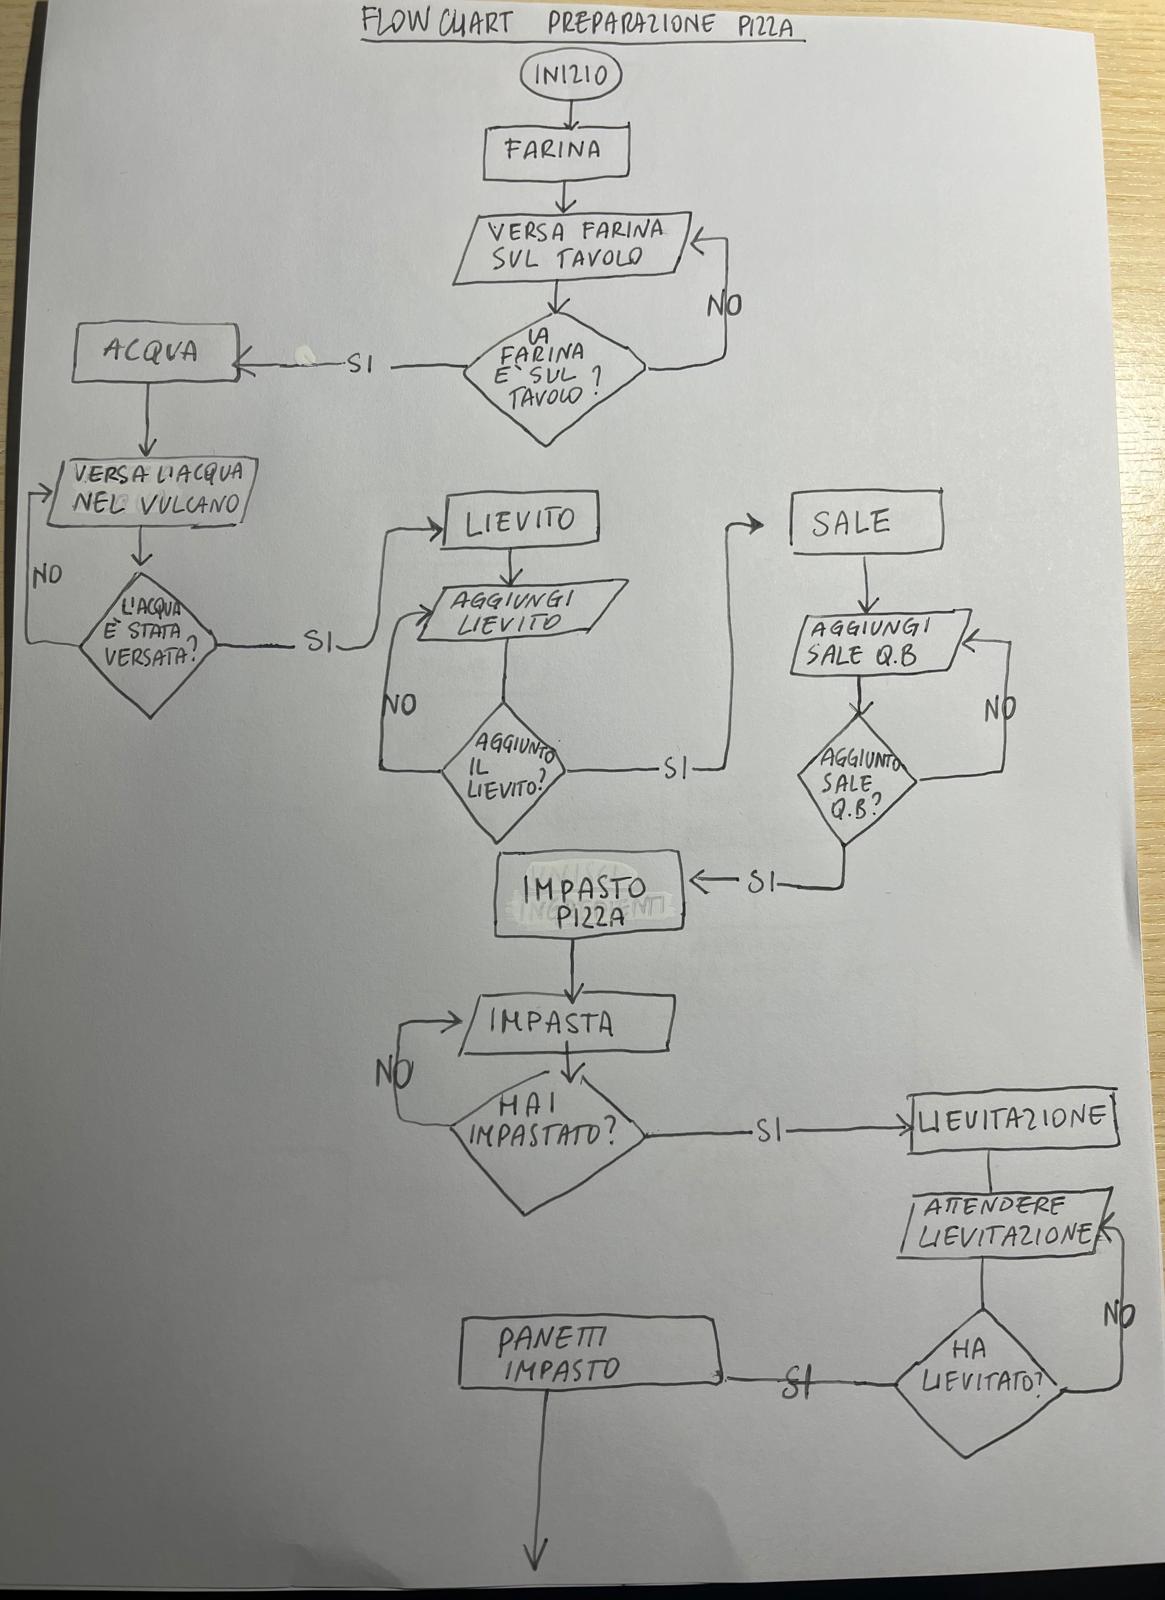 FLOW CHART PREPARAZIONE PIZZA
INIZIO
FARINA
VERSA FARINA
SUL TAVOLO
NO
LA
FARINA
E' SUL
TAVOLO?
SI
ACQUA
VERSA L'ACQUA
NEL VULCANO
NO
L'ACQUA
È STATA
VERSATA?
SI
LIEVITO
AGGIUNGI
LIEVITO
NO
AGGIUNTO
IL
LIEVITO?
SI
SALE
AGGIUNGI
SALE Q.B
NO
AGGIUNTO
SALE
Q.B?
SI
IMPASTO
PIZZA
IMPASTA
NO
HAI
IMPASTATO?
SI
LIEVITAZIONE
ATTENDERE
LIEVITAZIONE
NO
HA
LIEVITATO?
SI
PANETTI
IMPASTO